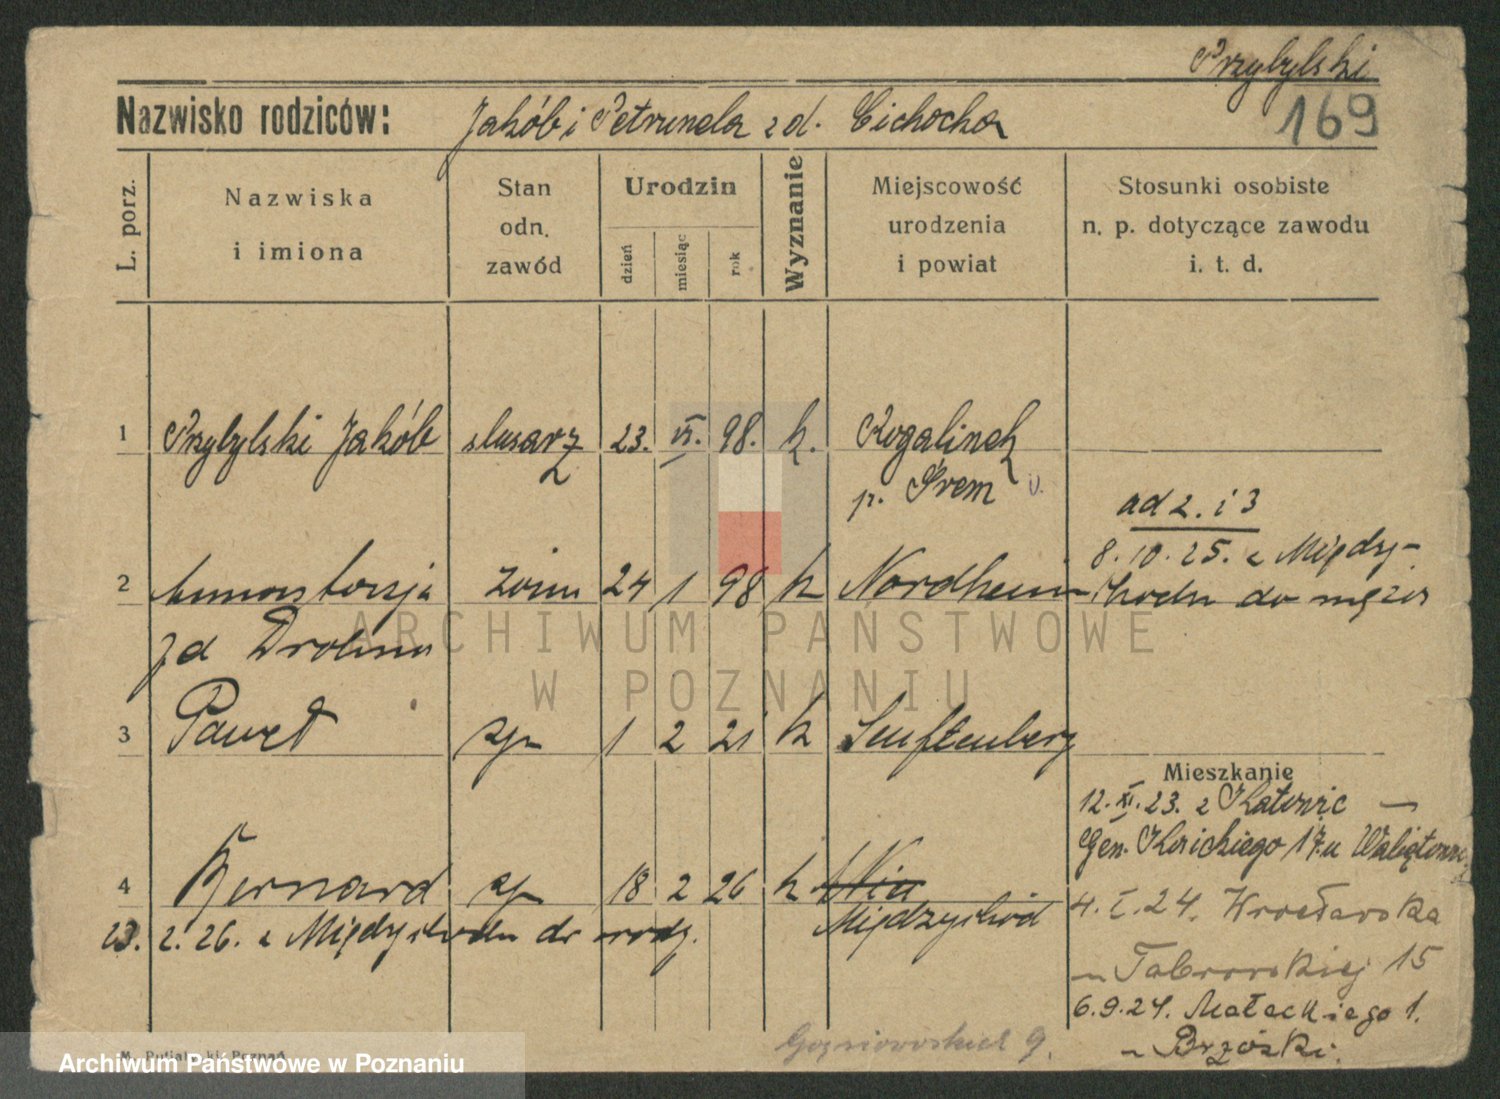 Przybylski
169
Nazwisko rodziców: Jakób i Petronela z d. Cichocka
L. porz.
Nazwiska i imiona
Stan odn. zawód
Urodzin
dzień
miesiąc
rok
Wyznanie
Miejscowość urodzenia i powiat
Stosunki osobiste n. p. dotyczące zawodu i. t. d.
1 Przybylski Jakób slusarz 23. VI. 98. k. Rogalinek
p. Śrem
ad 2. i 3
8.10.25. z Między-
2 Annastazja żona 24 1 98 k Nordheim chodu do męża
zd
ARCHIWUM PAŃSTWOWE
W POZNANIU
3 Paweł syn 1 2 21 k Senftenberg
Mieszkanie
12. XI. 23. z Katowic —
Gen. 17. u
4 Bernard syn 18 2 26 k Międzychód
4. I. 24. Wrocławska
23. 2. 26. z Międzychodu do rodz.
15
6.9.24. Małeckiego 1.
u Brzóski.
9.
Archiwum Państwowe w Poznaniu